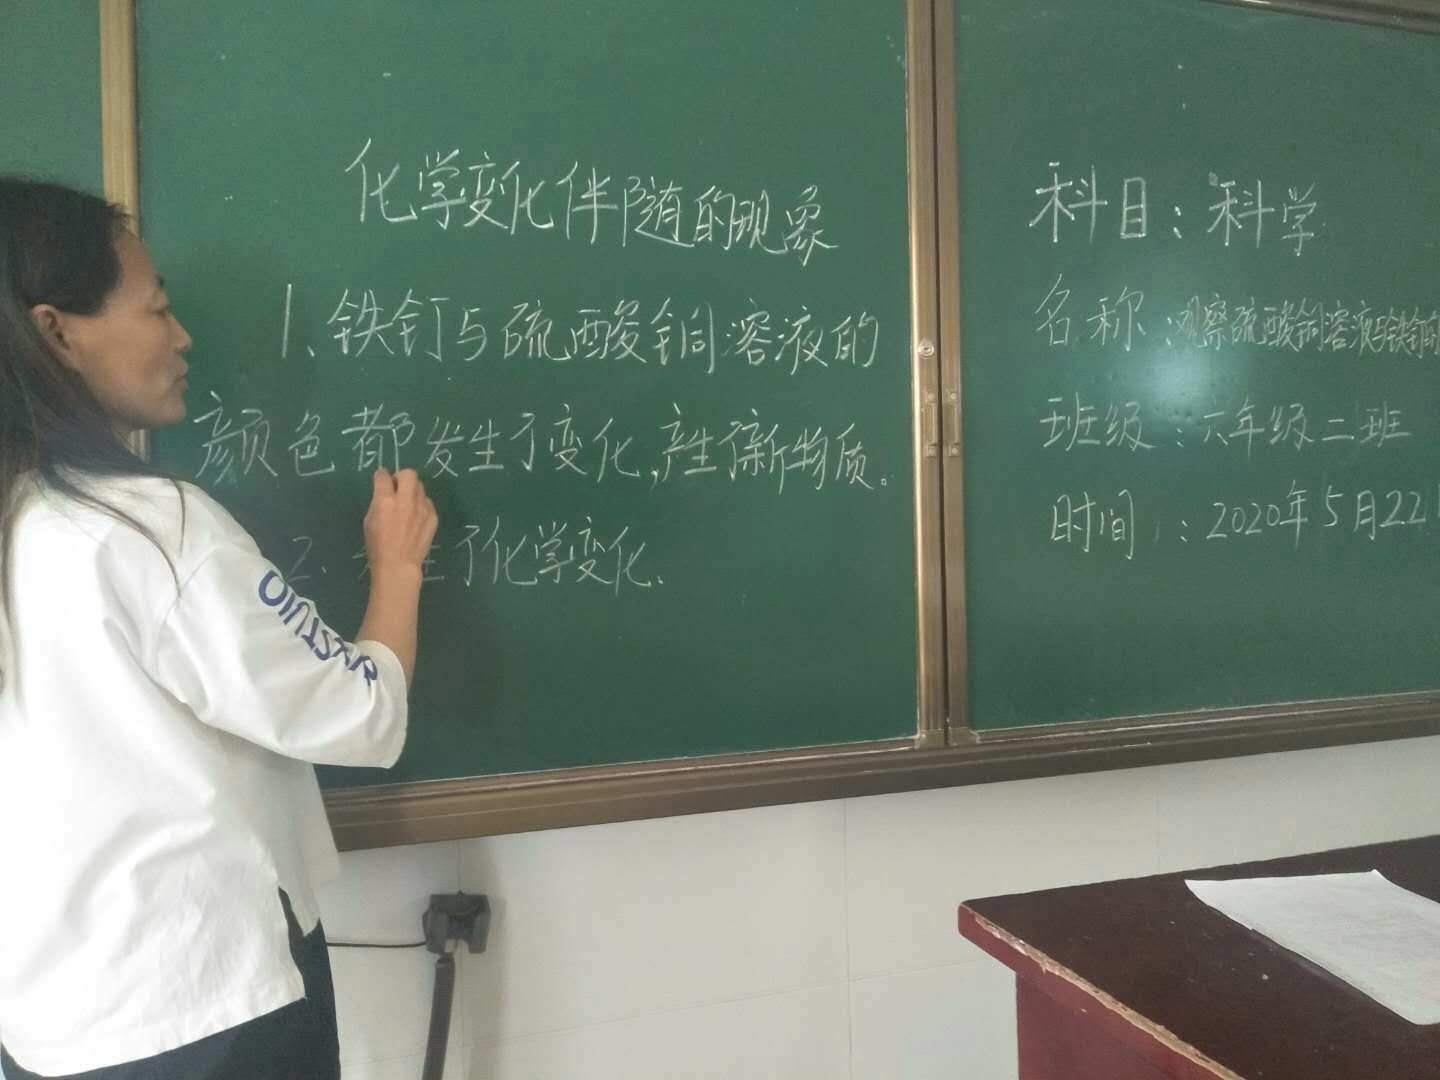 化学变化伴随的现象
1、铁钉与硫酸铜溶液的
颜色都发生了变化,产生了新物质。
2、发生了化学变化.
科目:科学
名称:观察硫酸铜溶液与铁钉的
班级:六年级二班
时间:2020年5月22日